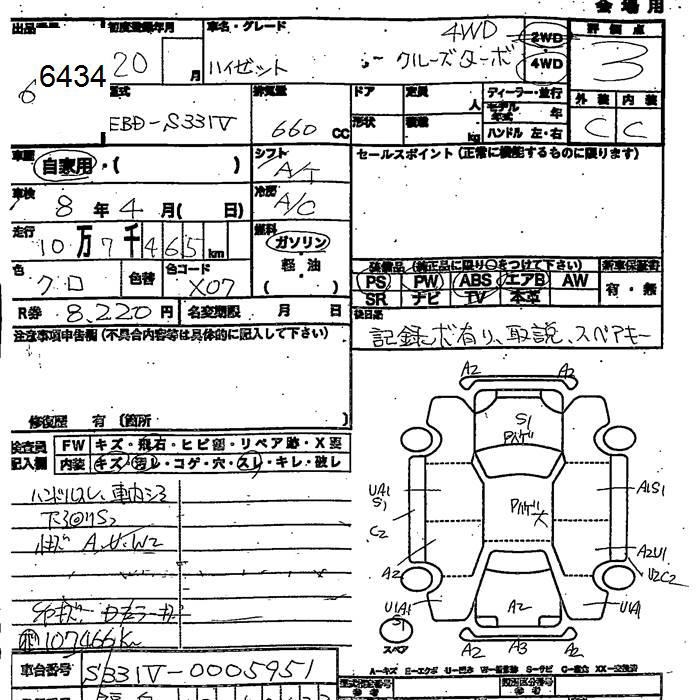 会場用
出品 初度登録年月 車名・グレード 評価点
6434
20 月 ハイゼット クルーズターボ
4WD 2WD 4WD
3
型式 排気量 ドア 定員 人 ディーラー・並行 外装 内装
EBD-S331V 660 CC 形状 積載 kg モデル年式 年
ハンドル 左・右 C C
車歴 自家用・( ) シフト A/T セールスポイント(正常に機能するものに限ります)
車検 8年 4月( 日) 冷房 A/C
走行 10万7千465km 燃料 ガソリン
軽油
( )
色 クロ 色替 色コード X07
装備品(純正品に限り○をつけて下さい) 新車保証書
PS PW ABS エアB AW 有・無
SR ナビ TV 本革
R券 8,220円 名変期限 月 日 後日品
注意事項申告欄(不具合内容等は具体的に記入して下さい)
記録ボ有り、取説、スペアキー
修復歴 有(箇所 )
検査員記入欄 FW キズ・飛石・ヒビ割・リペア跡・X要
内装 キズ・汚レ・コゲ・穴・スレ・キレ・破レ
ハンドルスレ、
A.U.W2
107466K
A2 A2
S1
UA1 S1
C2
A2
UA1 S1
A1S1
A2U1
U2C2
U1A1
A2
A2 A3 A2
スペア
A-キズ E-エクボ U-凹み W-補修跡 S-サビ C-腐食 XX-交換済
車台番号 S331V-0005951